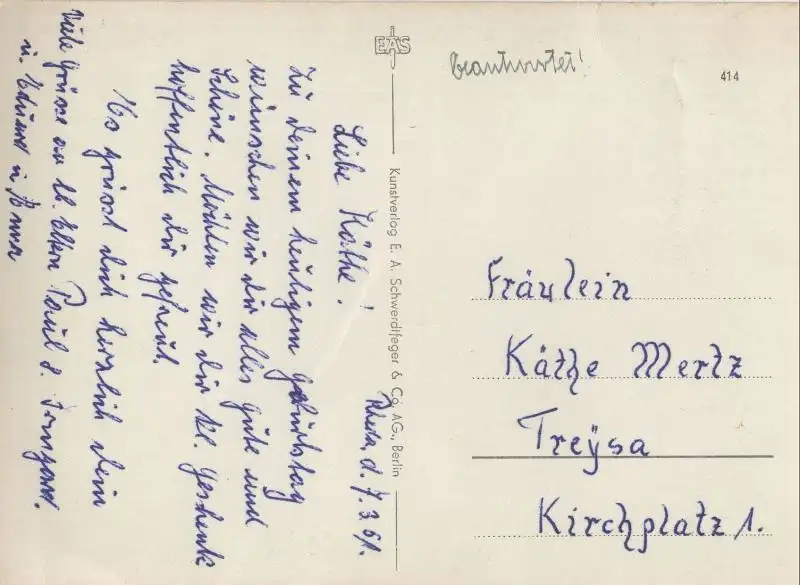 Rheda, d. 7.3.61.
Liebe Käthe!
Zu deinem heutigen Geburtstag
wünschen wir dir alles Gute und
Schöne. Möchten wir dir kl. Geschenk
hoffentlich dir gefreut.
Es grüsst dich herzlich dein
Paul & Irmgard.
Viele Grüsse an lb. Eltern
u. Eduard u Anna
EAS
Kunstverlag E. A. Schwerdtfeger & Co. AG., Berlin
beantwortet!
414
Fräulein
Käthe Mertz
Treÿsa
Kirchplatz 1.